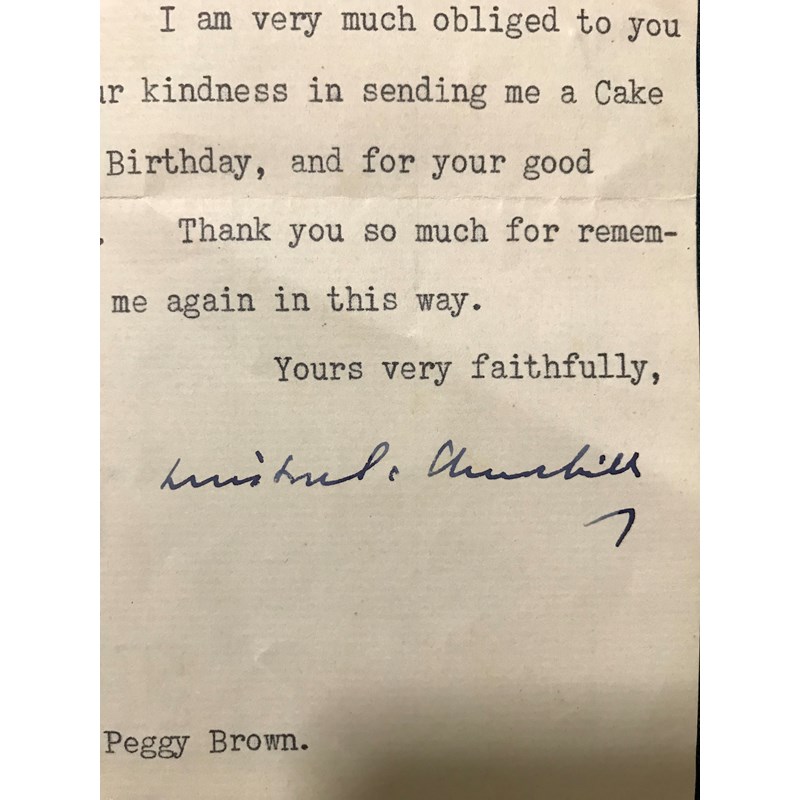 I am very much obliged to you
ur kindness in sending me a Cake
Birthday, and for your good
. Thank you so much for remem-
me again in this way.
Yours very faithfully,
Winston S. Churchill
Peggy Brown.